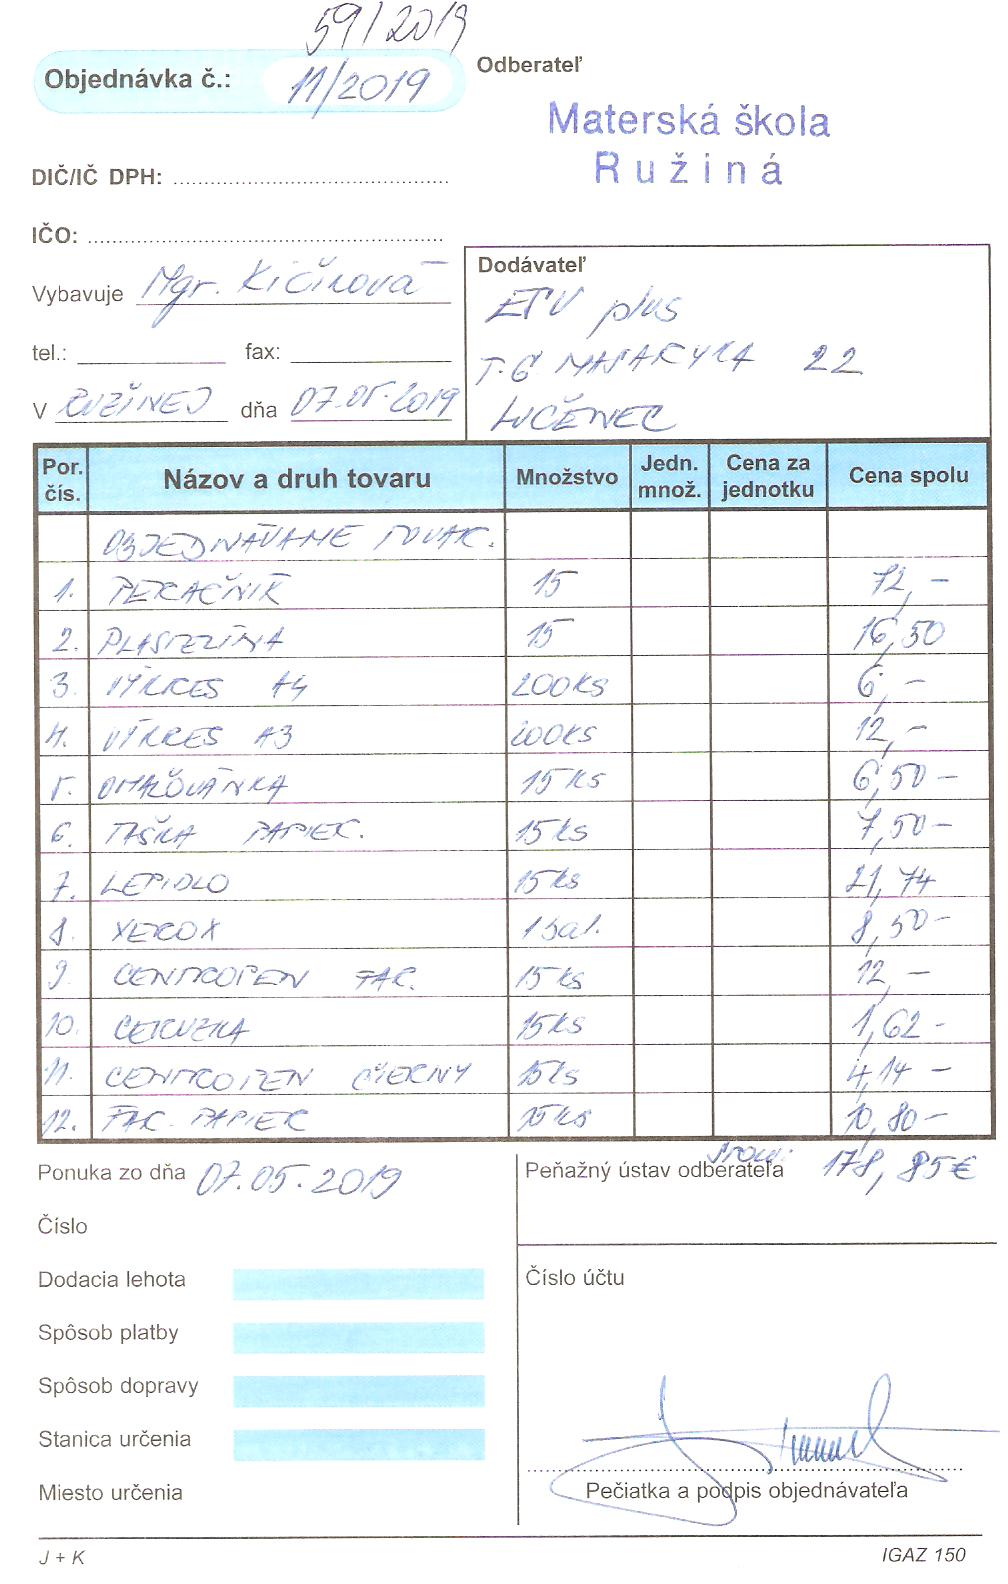 59/2019
Objednávka č.: 11/2019
Odberateľ
Materská škola
Ružiná
DIČ/IČ DPH:
IČO:
Vybavuje Mgr. Kičinová
tel.: fax:
V RUŽINEJ dňa 07.05.2019
Dodávateľ
ETV plus
T.G MASARYKA 22
LUČENEC
Por. čís. Názov a druh tovaru Množstvo Jedn. množ. Cena za jednotku Cena spolu
OBJEDNÁVAME TOVAR.
1. PERAČNÍK 15 72,-
2. PLASTELÍNA 15 16,50
3. VÝKRES A4 200KS 6,-
4. VÝKRES A3 200KS 12,-
5. OMAĽOVÁNKA 15KS 6,50-
6. TAŠKA PAPIER. 15KS 7,50-
7. LEPIDLO 15KS 21,74
8. XEROX 1 bal. 8,50-
9. CENTROPEN FAR. 15KS 12,-
10. CERUZKA 15KS 1,62-
11. CENTROPEN ČIERNY 15KS 4,14-
12. FAR. PAPIER 15KS 10,80-
Ponuka zo dňa 07.05.2019
Peňažný ústav odberateľa
178,85€
Číslo
Dodacia lehota
Číslo účtu
Spôsob platby
Spôsob dopravy
Stanica určenia
Miesto určenia
Pečiatka a podpis objednávateľa
J + K
IGAZ 150